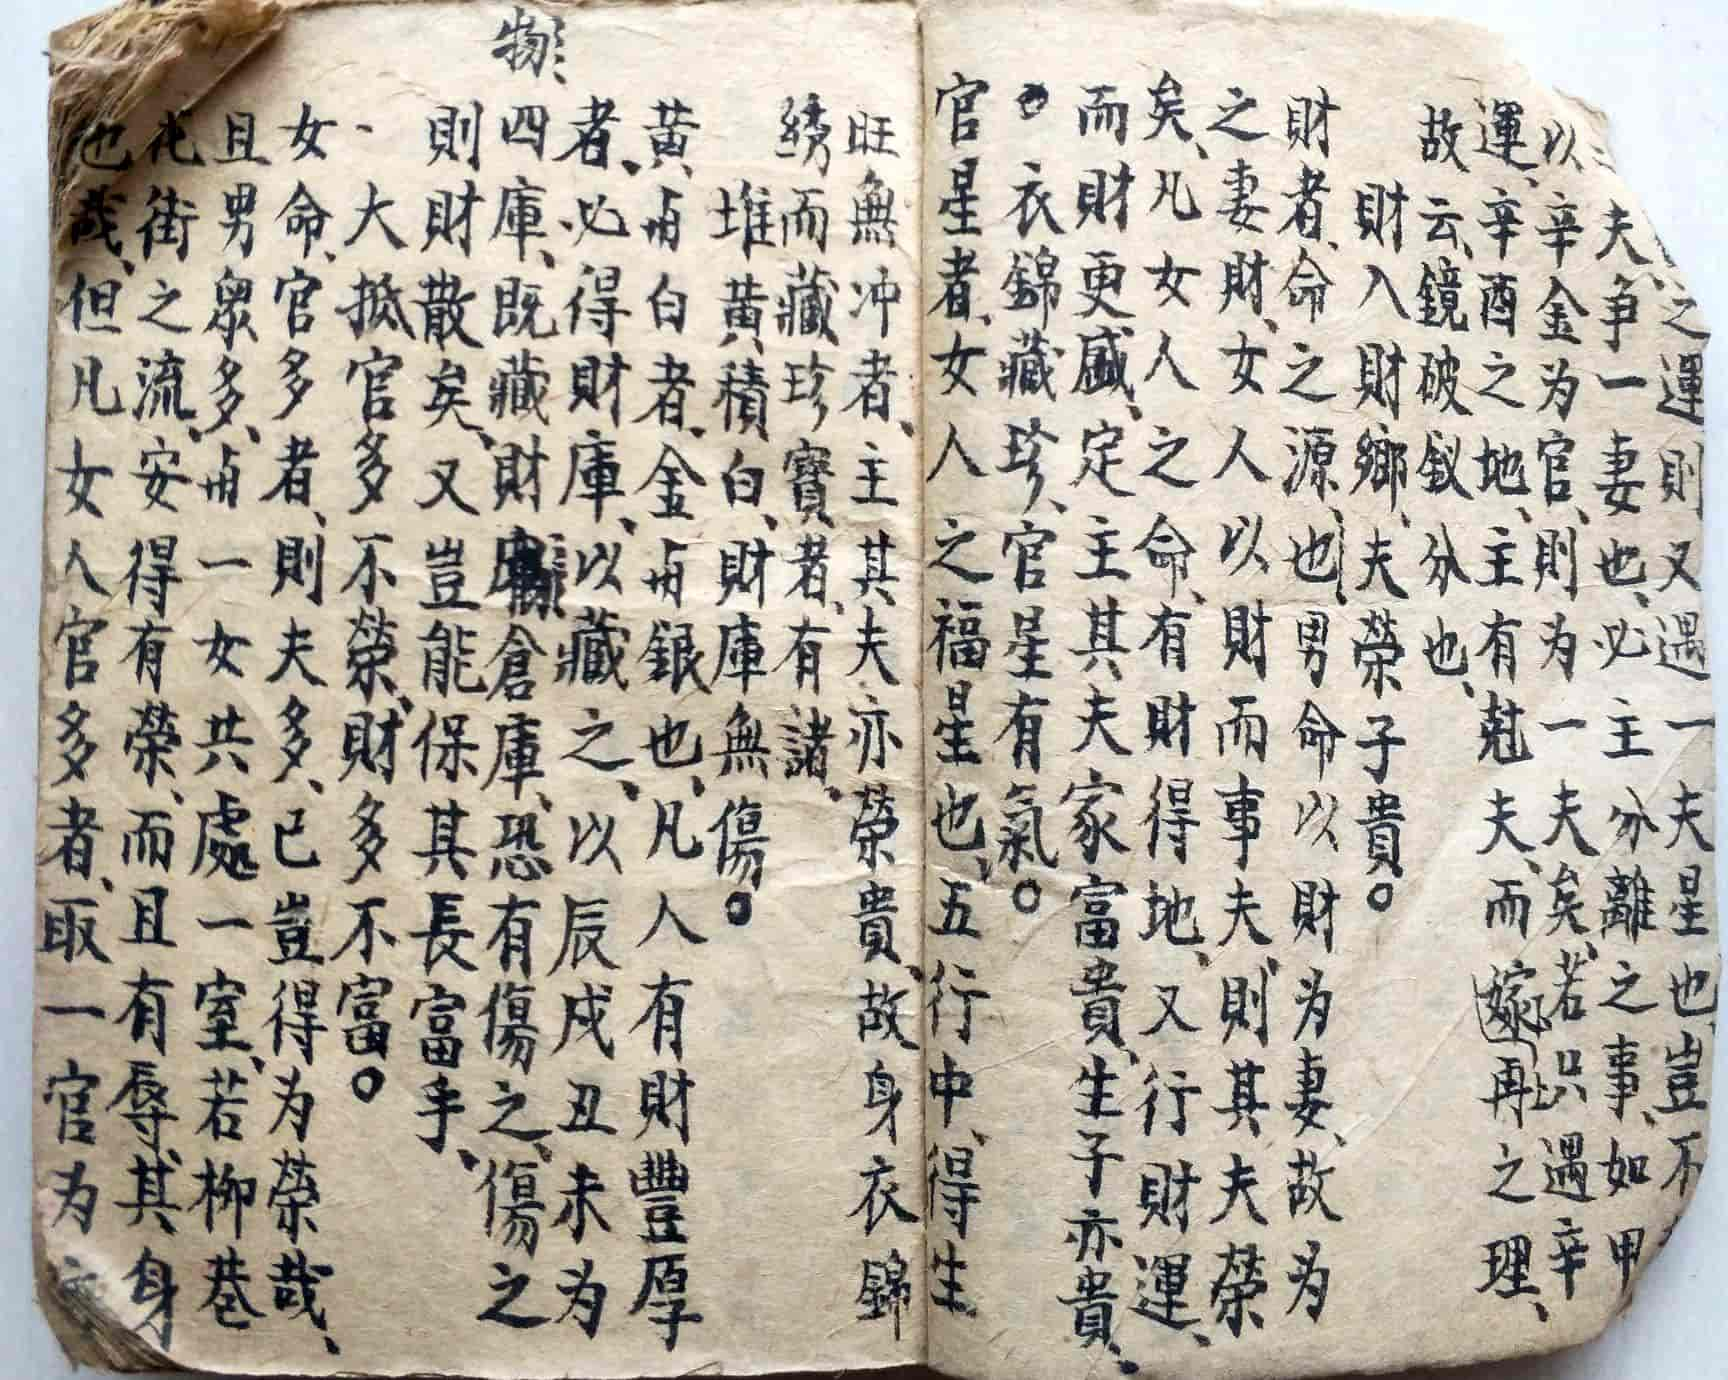 之運則又遇一夫星也、豈不
夫争一妻也、必主分離之事、如甲
以辛金为官、則为一夫矣、若只遇辛
運、辛酉之地、主有尅夫、而嫁再之理、
故云、鏡破釵分也、
財入財鄉、夫榮子貴。
財者、命之源也、男命以財为妻、故为
之妻財、女人以財而事夫、則其夫榮
矣、凡女人之命、有財得地、又行財運、
而財更盛、定主其夫家富貴、生子亦貴、
衣錦藏珍、官星有氣。
官星者、女人之福星也、五行中、得生
旺無冲者、主其夫亦榮貴、故身衣錦
綉而藏珍寶者、有諸、
堆黃積白、財庫無傷。
黃毌白者、金毌銀也、凡人有財豐厚
者、必得財庫、以藏之、以辰戌丑未为
四庫、既藏財物倉庫、恐有傷之、傷之
則財散矣、又豈能保其長富乎、
大抵官多不榮、財多不富。
女命、官多者、則夫多、已豈得为榮哉、
且男眾多、毌一女共處一室、若柳巷
花街之流、安得有榮、而且有辱、其身
也哉、但凡女人官多者、取一官为